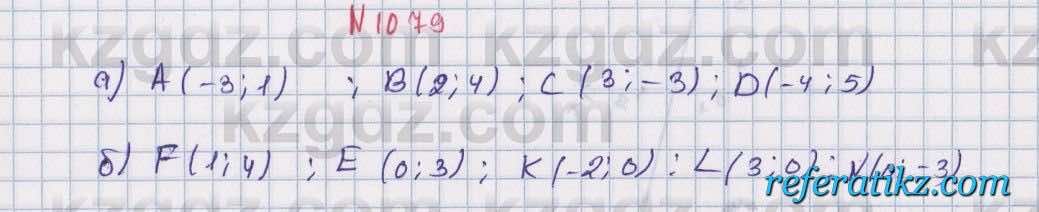 N 1079
kzgdz.com kzgdz.com kz
а) A(-3;1) ; B(2;4) ; C(3;-3); D(-4;5)
kzgdz.com
б) F(1;4) ; E (0;3) ; K(-2;0) : L(3;0); N(0;-3)
referatikz.com